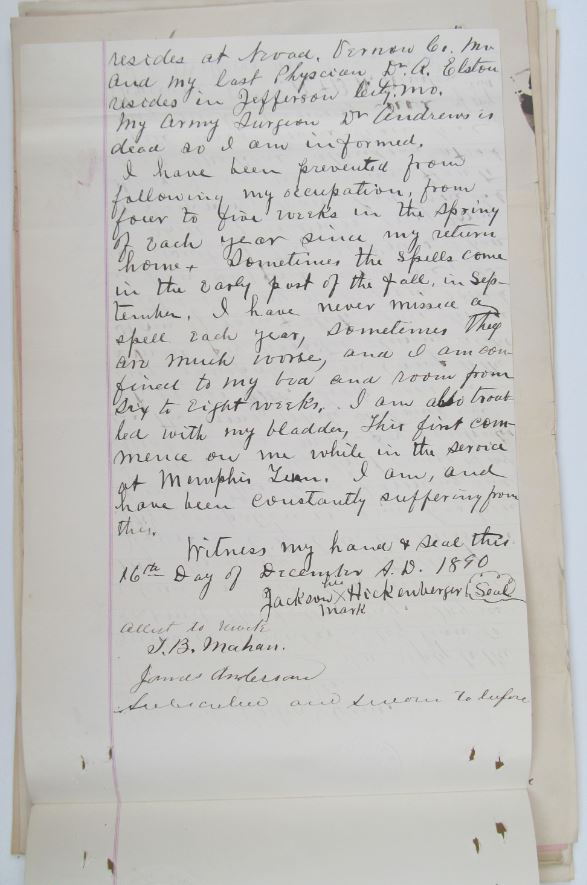 resides at Nevad. Vernon Co. Mo
and my last Physcian Dr. A. Elston
resides in Jefferson City, Mo.
My Army Surgeon Dr Andrews is
dead so I am informed.
I have been prevented from
following my occupation, from
four to five weeks in the spring
of Each year since my return
home. Sometimes the spells come
in the Early part of the fall, in Sep-
tember, I have never missed a
spell Each year, Sometimes they
are much worse, and I am con-
fined to my bed and room from
Six to Eight weeks. I am also troub
led with my bladder, This first com-
mence on me while in the service
at Memphis Tenn. I am, and
have been constantly suffering from
this.
Witness my hand & seal this
16th Day of December A.D. 1890
Jackson his X mark Hickenberger (Seal)
Attest to mark
T.B. Mahan.
James Anderson
Subscribed and sworn to before